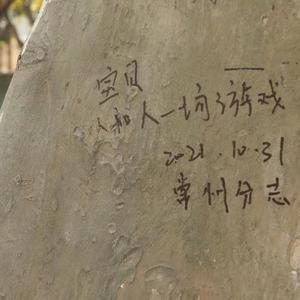 宝贝
人和人一场游戏
2021.10.31
常州分志